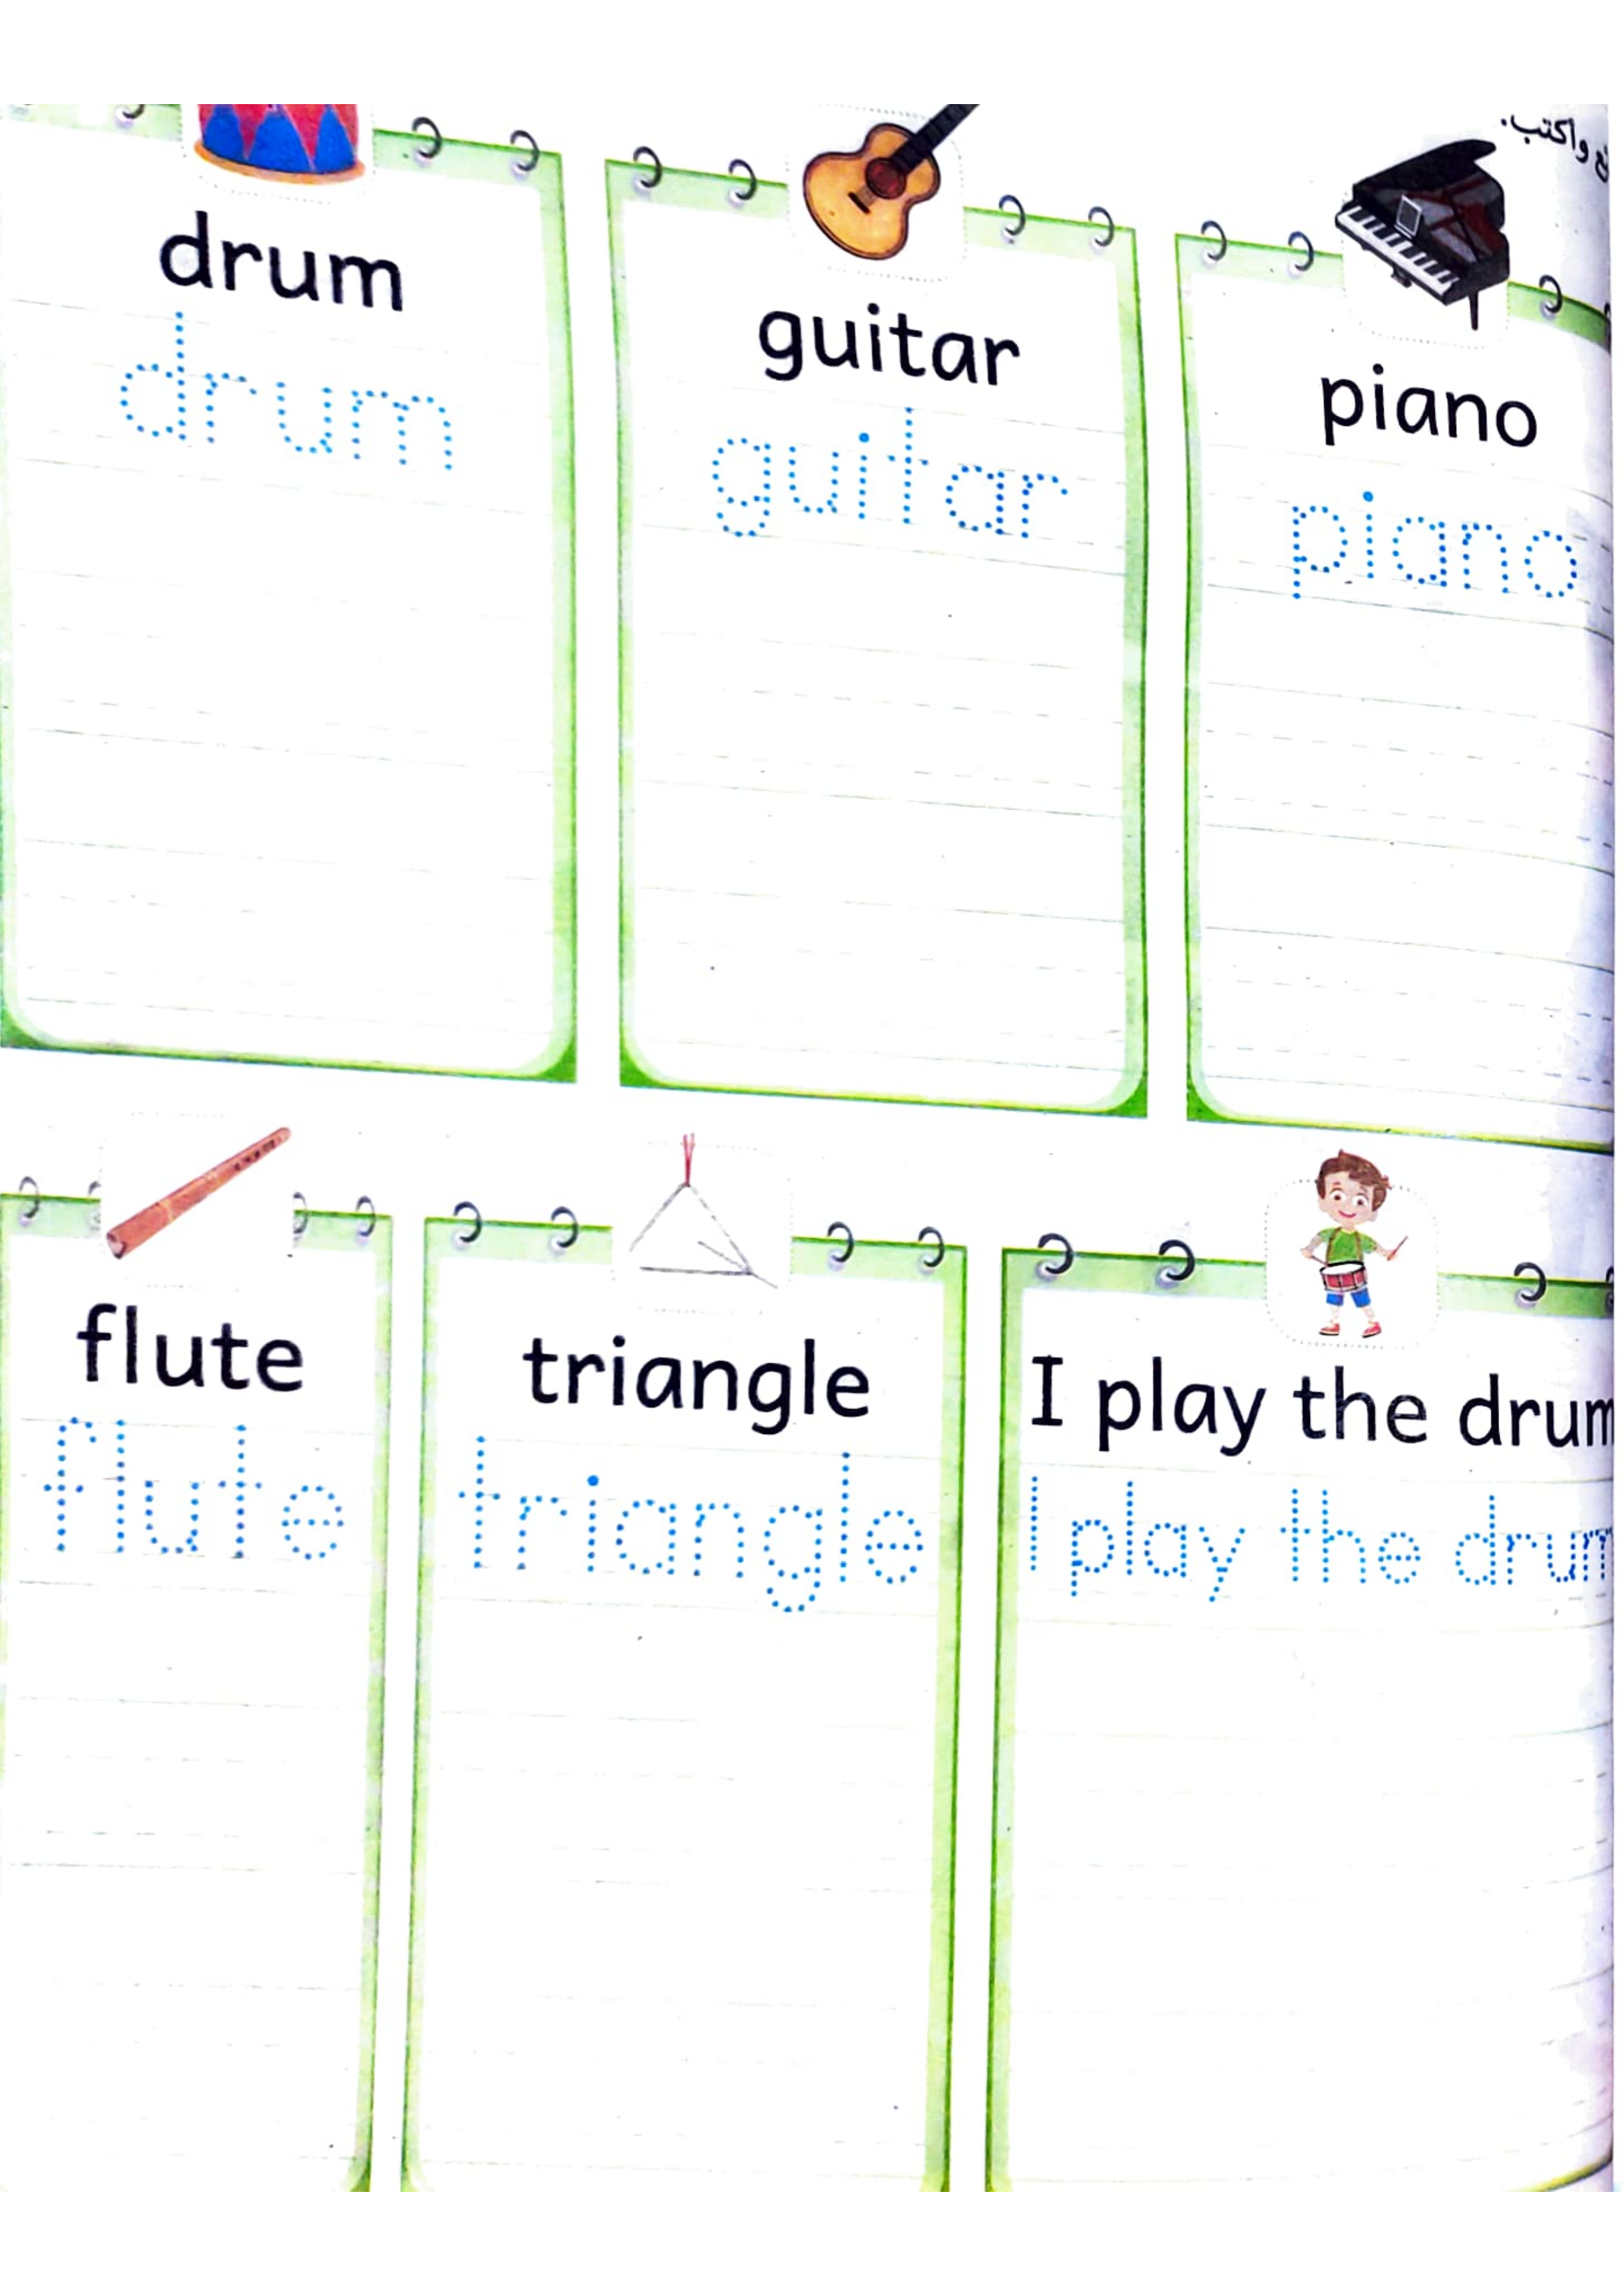 وأكتب.
drum
drum
guitar
guitar
piano
piano
flute
flute
triangle
triangle
I play the drum
I play the drum